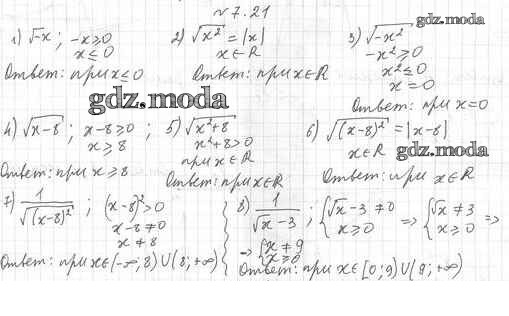 № 7.21
1) √-x ; -x ≥ 0
x ≤ 0
Ответ: при x ≤ 0
2) √x² = |x|
x ∈ R
Ответ: при x ∈ R
3) √-x²
-x² ≥ 0
x² ≤ 0
x = 0
Ответ: при x = 0
gdz.moda
gdz.moda
4) √x-8 ; x-8 ≥ 0 ;
x ≥ 8
Ответ: при x ≥ 8
5) √x²+8
x²+8 > 0
при x ∈ R
Ответ: при x ∈ R
6) √(x-8)² = |x-8|
x ∈ R
gdz.moda
Ответ: при x ∈ R
7) 1/√(x-8)² ; (x-8)² > 0
x-8 ≠ 0
x ≠ 8
Ответ: при x ∈ (-∞; 8) ∪ (8; +∞)
8) 1/√x-3 ; {√x-3 ≠ 0 => {√x ≠ 3 =>
x ≥ 0 x ≥ 0
=> {x ≠ 9
x ≥ 0
Ответ: при x ∈ [0; 9) ∪ (9; +∞)